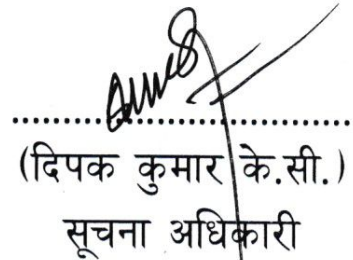 ....................................
(दिपक कुमार के.सी.)
सूचना अधिकारी